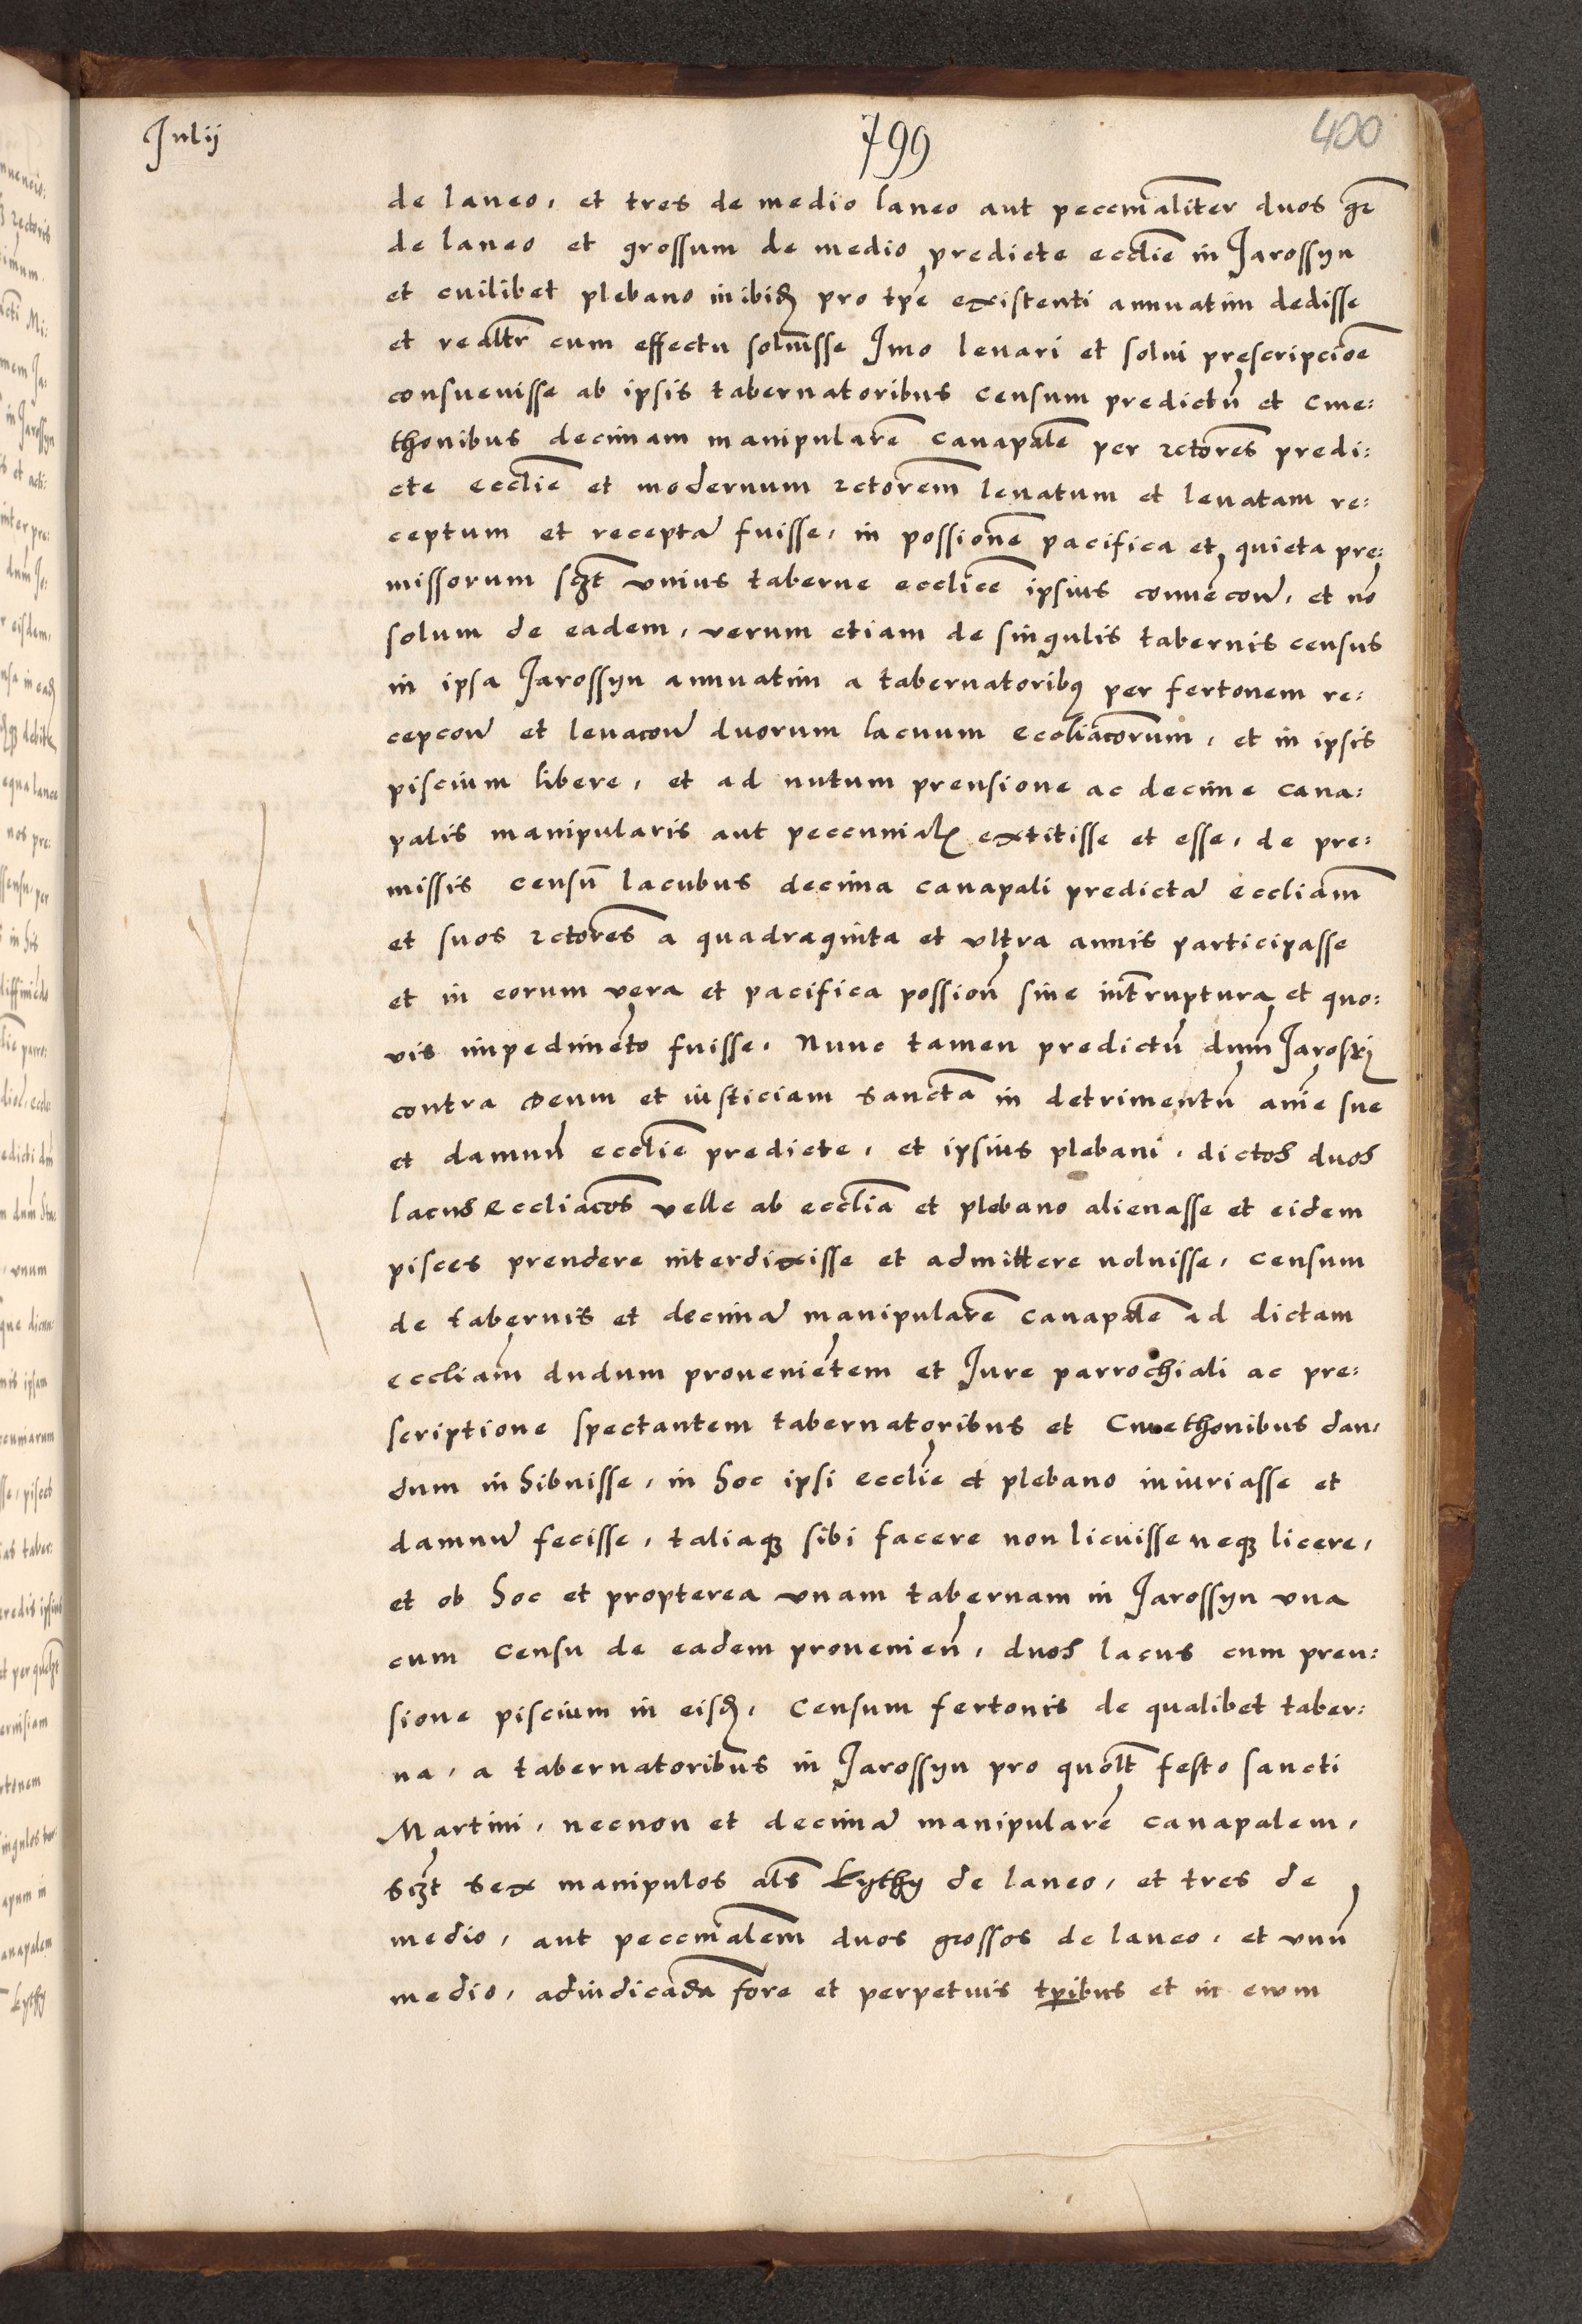 Julij
799
400
de laneo, et tres de medio laneo aut peccunialiter duos gr
de laneo et grossum de medio predicte ecclie in Jarossyn
et cuilibet plebano inibid pro tpe existenti annuatim dedisse
et realtr cum effectu soluisse Imo leuari et solui prescripcioe
consueuisse ab ipsis tabernatoribus censum predictu et Cme:
thonibus decimam manipulare canapale per rctores predi:
cte ecclie et modernum rctorem leuatum et leuatam re:
ceptum et recepta fuisse, in possione pacifica et quieta pre:
missorum sczt vnius taberne ecclice ipsius conuecon, et no
solum de eadem, verum etiam de singulis tabernis census
in ipsa Jarossyn annuatim a tabernatoribq per fertonem re:
cepcon et leuacon duorum lacuum eccliacorum, et in ipsis
piscium libere, et ad nutum prensione ac decime cana:
palis manipularis aut peccunial extitisse et esse, de pre:
missis censu lacubus decima canapali predicta eccliam
et suos rctores a quadraginta et vltra annis participasse
et in eorum vera et pacifica possion sine intrruptura et quo:
vis impedimento fuisse, Nunc tamen predictu dnm Jaroski
contra deum et iusticiam sancta in detrimentu anie sue
et damnu ecclie predicte, et ipsius plebani, dictos duos
lacus eccliacos velle ab ecclia et plebano alienasse et eidem
pisces prendere interdixisse et admittere noluisse, censum
de tabernis et decima manipulare canapale ad dictam
eccliam dudum prouenietem et Jure parrochiali ac pre:
scriptione spectantem tabernatoribus et Cmethonibus dan,
dum inhibuisse, in hoc ipsi ecclie et plebano iniuriasse et
damnu fecisse, taliaqz sibi facere non licuisse neqz licere,
et ob hoc et propterea vnam tabernam in Jarossyn vna
cum censu de eadem prouenien, duos lacus cum pren:
sione piscium in eisd, Censum fertonis de qualibet taber:
na, a tabernatoribus in Jarossyn pro quolt festo sancti
Martini, necnon et decima manipulare canapalem,
sczt sex manipulos als kythy de laneo, et tres de
medio, aut peccunialem duos grossos de laneo, et vnu
medio, adiudicada fore et perpetuis tpibus et in ewm